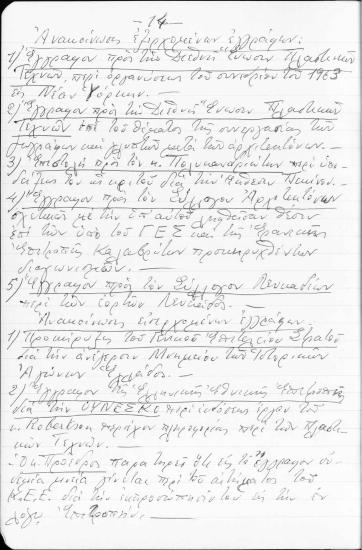 - 14 -
Ἀνακοίνωσις ἐξερχομένων ἐγγράφων:
1) Ἔγγραφον πρὸς τὴν Διεθνῆ Ἕνωσιν Πλαστικῶν
Τεχνῶν, περὶ ὀργανώσεως τοῦ συνεδρίου τοῦ 1963
εἰς Νέαν Ὑόρκην. -
2) Ἔγγραφον πρὸς τὴν Διεθνῆ Ἕνωσιν Πλαστικῶν
Τεχνῶν ἐπὶ τοῦ θέματος τῆς συνεργασίας τῶν
ζωγράφων καὶ γλυπτῶν μετὰ τῶν ἀρχιτεκτόνων. -
3) Ἐπιστολὴ πρὸς τὸν κ. περὶ
τοῦ διὰ τὴν ἔκθεσιν
4) Ἔγγραφον πρὸς τὸν Σύλλογον Ἀρχιτεκτόνων
σχετικῶς μὲ τὴν ὑπ' αὐτοῦ ληφθεῖσαν θέσιν
ἐπὶ τῶν ὑπὸ τοῦ ΓΕΣ καὶ τῆς Ἐρανικῆς
Ἐπιτροπῆς Καλαβρύτων προκηρυχθέντων
διαγωνισμῶν. -
5) Ἔγγραφον πρὸς τὸν Σύλλογον Λευκαδίων
περὶ τῶν ἑορτῶν Λευκάδος. -
Ἀνακοίνωσις εἰσερχομένων ἐγγράφων.
1) Προκήρυξις τοῦ Γενικοῦ Ἐπιτελείου Στρατοῦ
διὰ τὴν ἀνέγερσιν Μνημείου τῶν Ἱστορικῶν
Ἀγώνων τῆς Ἑλλάδος. -
2) Ἔγγραφον τῆς Ἑλληνικῆς Ἐθνικῆς Ἐπιτροπῆς
διὰ τὴν ΟΥΝΕΣΚΟ περὶ ἐκδόσεως ἔργου τοῦ
κ. Robertson παρέχον πληροφορίας περὶ τῶν Πλαστι-
κῶν Τεχνῶν. -
- Ὁ κ. Πρόεδρος παρατηρεῖ ὅτι εἰς τὸ ἔγγραφον οὐ-
δεμία μνεία γίνεται περὶ τοῦ αἰτήματος τοῦ
Κ.Ε.Ε. διὰ τὴν ἐκπροσώπησίν του εἰς τὴν ἐν
λόγῳ Ἐπιτροπήν. -